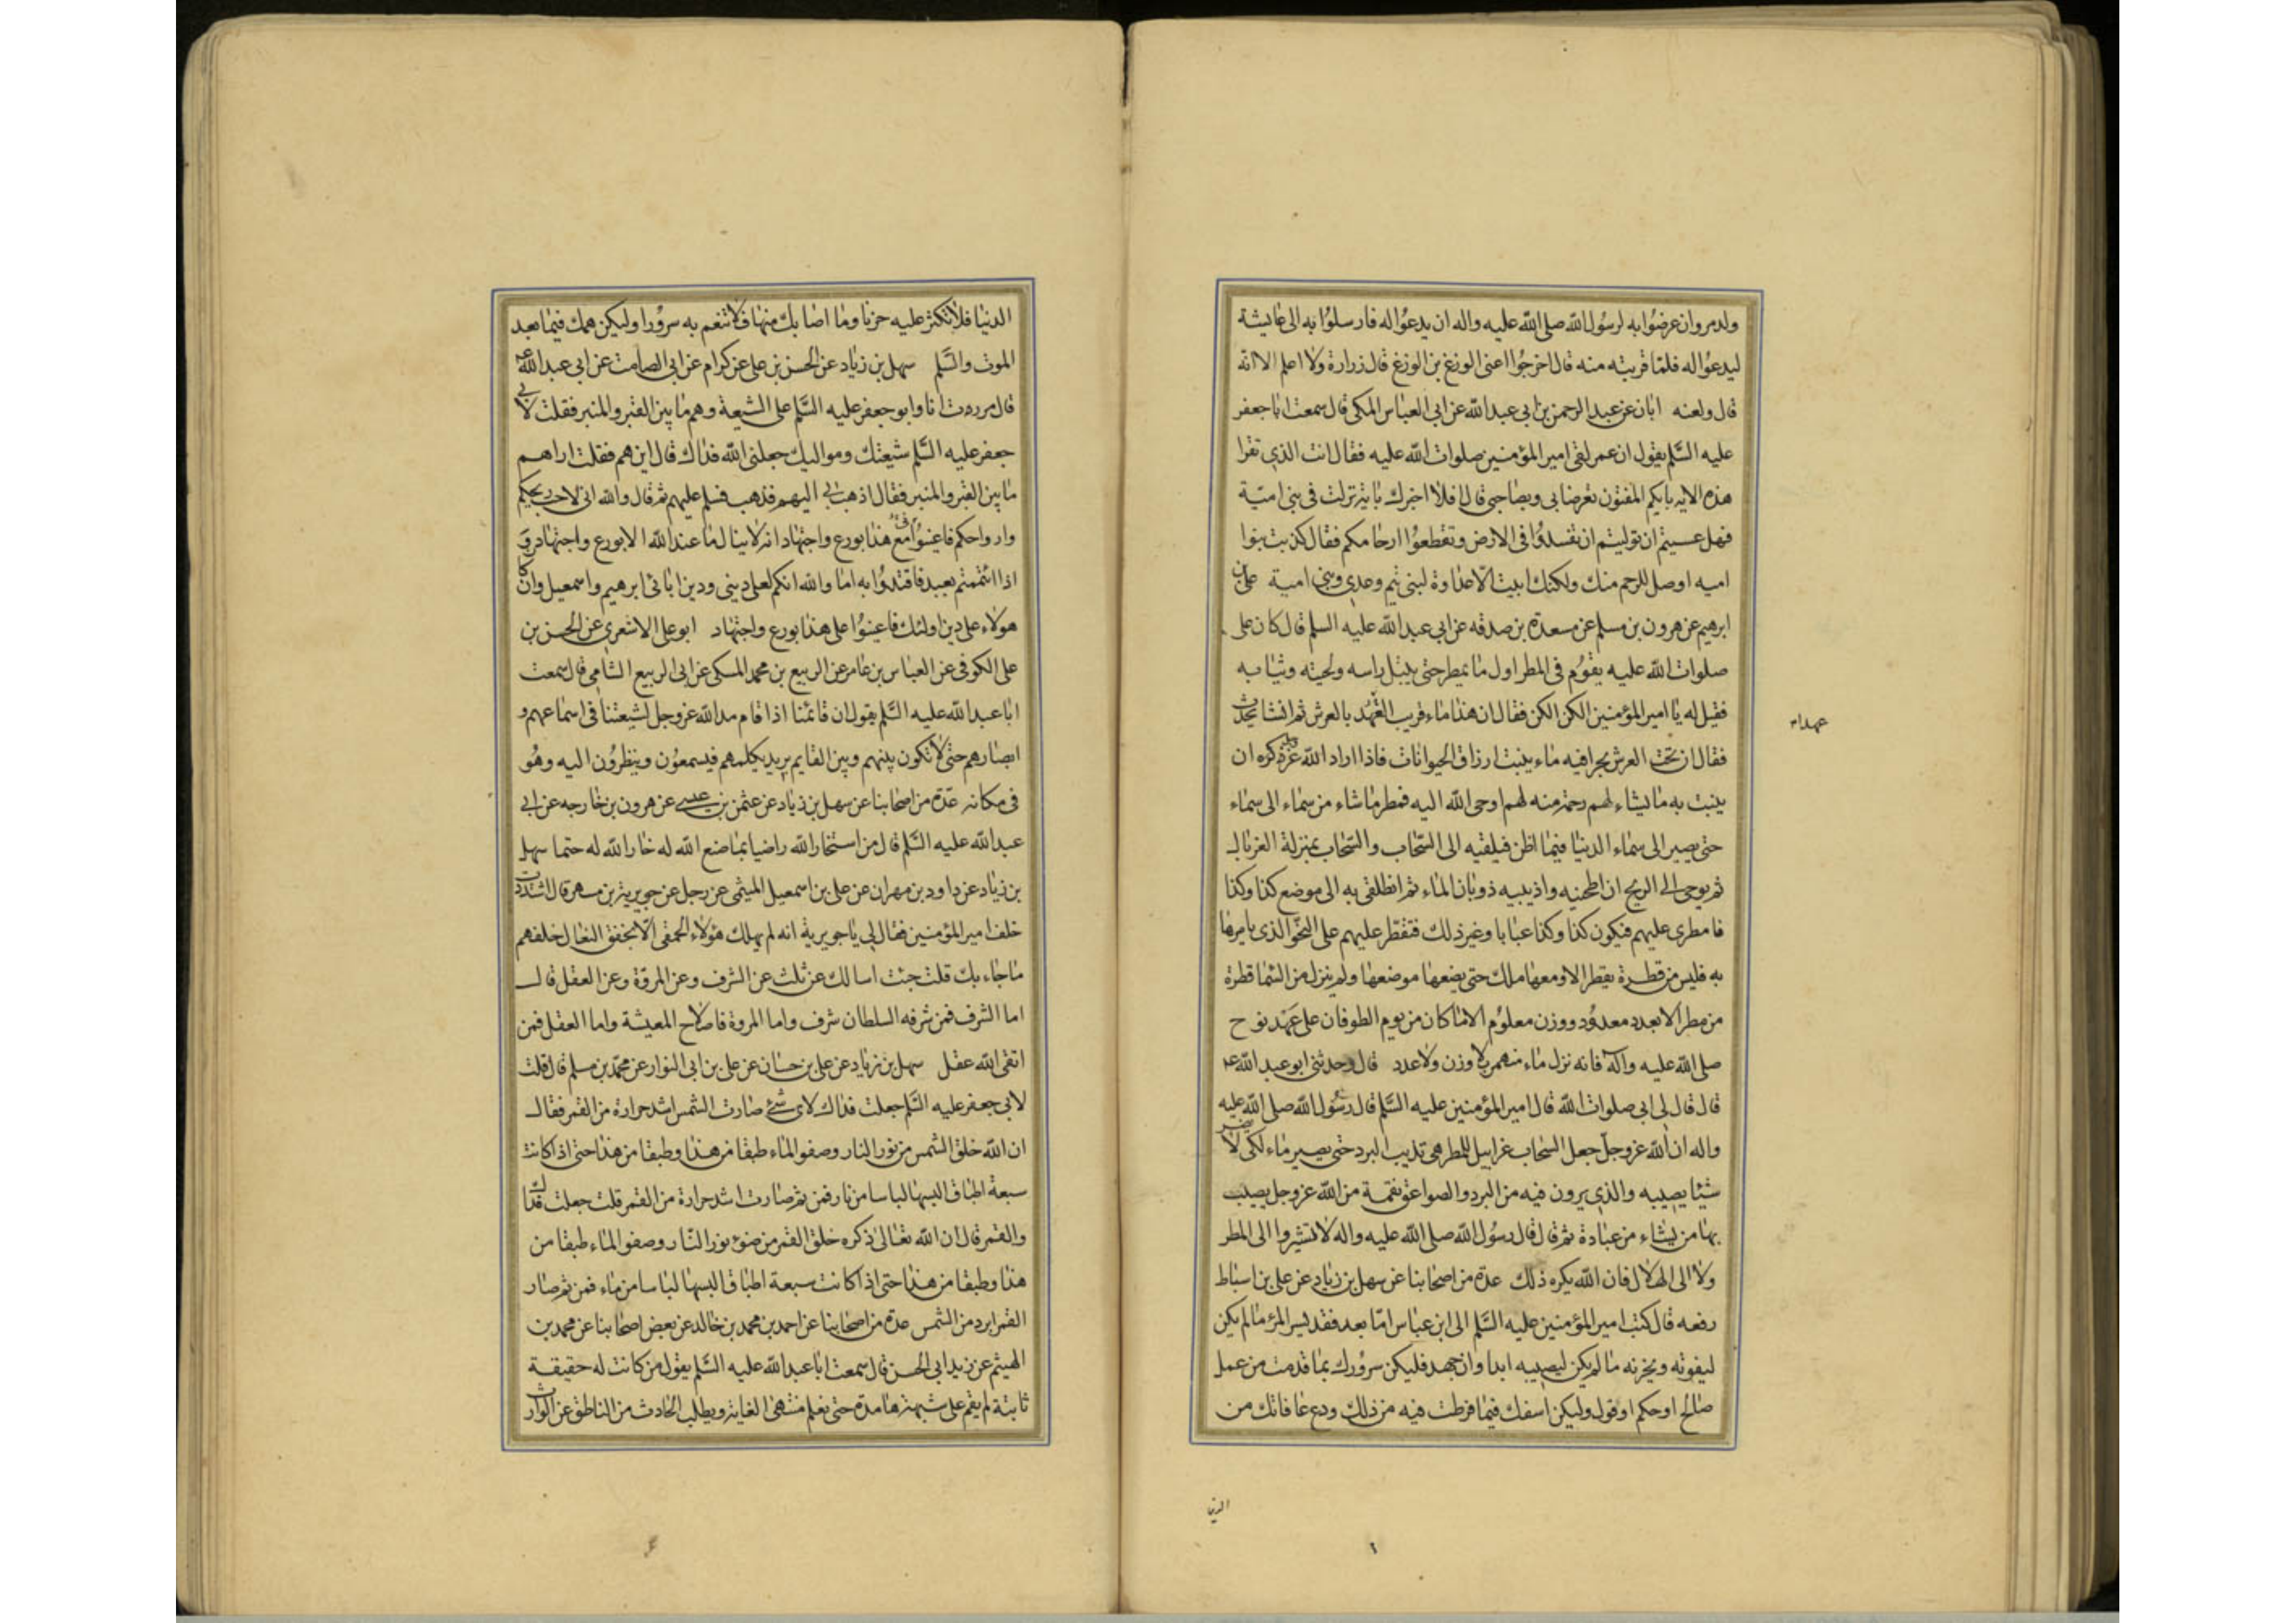 ولد مروان عرضوا به لرسول الله صلى الله عليه واله ان يدعوا له فارسلوا به الى عايشة
ليدعوا له فلما قربته منه قال اخرجوا عنى الوزغ بن الوزغ قال زرارة ولا اعلم الا انه
قال ولعنه ابان عن عبد الرحمن بن ابى عبد الله عن ابى العباس المكى قال سمعت ابا جعفر
عليه السلم يقول ان عمر لقى امير المؤمنين صلوات الله عليه فقال انت الذى تقرا
هذه الايه بايكم المفتون تعرضا بى وبصاحبى قال افلا اخبرك باية نزلت فى بنى امية
فهل عسيتم ان توليتم ان تفسدوا فى الارض وتقطعوا ارحامكم فقال كذبت بنوا
اميه اوصل للرحم منك ولكنك ابيت الا عداوة لبنى تيم وعدى وبنى امية على بن
ابرهيم عن هرون بن مسلم عن مسعدة بن صدقه عن ابى عبد الله عليه السلم قال كان على
صلوات الله عليه يقوم فى المطر اول ما يمطر حتى يبتل راسه ولحيته وثيابه
فقيل له يا امير المؤمنين الكن الكن فقال ان هذا ماء قريب العهد بالعرش ثم انشا يحدث
عهدا م
فقال ان تحت العرش بحرا فيه ماء ينبت ارزاق الحيوانات فاذا اراد الله عز ذكره ان
ينبت به ما يشاء لهم رحمة منه لهم اوحى الله اليه فمطر ما شاء من سماء الى سماء
حتى يصير الى سماء الدنيا فيما اظن فيلقيه الى السحاب والسحاب بمنزلة الغربال
ثم يوحى الى الريح ان اطحنيه واذيبيه ذوبان الماء ثم انطلقى به الى موضع كذا وكذا
فامطرى عليهم فيكون كذا وكذا عبابا وغير ذلك فتقطر عليهم على النحو الذى يامرها
به فليس من قطرة يقطر الا ومعها ملك حتى يضعها موضعها ولم ينزل من السما قطرة
من مطر الا بعدد معدود ووزن معلوم الا ما كان من يوم الطوفان على عهد نوح
صلى الله عليه واله فانه نزل ماء منهمر بلا وزن ولا عدد قال وحدثنى ابو عبد الله ع
قال قال لى ابى صلوات الله قال امير المؤمنين عليه السلم قال رسول الله صلى الله عليه
واله ان الله عز وجل جعل السحاب غرابيل للمطر هى تذيب البرد حتى يصير ماء لكى لا يضر
شيئا يصيبه والذى يرون فيه من البرد والصواعق نقمة من الله عز وجل يصيب
بها من يشاء من عبادة ثم قال قال رسول الله صلى الله عليه واله لا تشيروا الى المطر
ولا الى الهلال فان الله يكره ذلك عدة من اصحابنا عن سهل بن زياد عن على بن اسباط
رفعه قال كتب امير المؤمنين عليه السلم الى ابن عباس اما بعد فقد يسر المرء ما لم يكن
ليفوته ويحزنه ما لم يكن ليصيبه ابدا وان جهد فليكن سرورك بما قدمت من عمل
صالح او حكم او قول وليكن اسفك فيما فرطت فيه من ذلك ودع عافاتك من
الدنيا
الدنيا فلا تكثر عليه حزنا وما اصابك منها فلا تنعم به سرورا وليكن همك فيما بعد
الموت والسلم سهل بن زياد عن الحسن بن على عن كرام عن ابى الصامت عن ابى عبد الله ع
قال مررت انا وابو جعفر عليه السلم على الشيعة وهم ما بين القبر والمنبر فقلت لابى
جعفر عليه السلم شيعتك ومواليك جعلنى الله فداك قال اين هم فقلت اراهم
ما بين القبر والمنبر فقال اذهب بى اليهم فذهب فسلم عليهم ثم قال والله انى لاحب ريحكم
وارواحكم فاعينوا مع هذا بورع واجتهاد انه لا ينال ما عند الله الا بورع واجتهاد و
اذا ائتممتم بعبد فاقتدوا به اما والله انكم لعلى دينى ودين ابائى ابرهيم واسمعيل وان كان
هولاء على دين اولئك فاعينوا على هذا بورع واجتهاد ابو على الاشعرى عن الحسن بن
على الكوفى عن العباس بن عامر عن الربيع بن محمد المسكى عن ابى الربيع الشامى قال سمعت
ابا عبد الله عليه السلم يقول ان قائمنا اذا قام مد الله عز وجل لشيعتنا فى اسماعهم و
ابصارهم حتى لا تكون بينهم وبين القايم بريد يكلمهم فيسمعون وينظرون اليه وهو
فى مكانه عدة من اصحابنا عن سهل بن زياد عن عثمن بن عيسى عن هرون بن خارجه عن ابى
عبد الله عليه السلم قال من استخار الله راضيا بما صنع الله له خار الله له حتما سهل
بن زياد عن داود بن مهران عن على بن اسمعيل الميثمى عن رجل عن جويرية بن مسهر قال اشتددت
خلف امير المؤمنين فقال لى يا جويرية انه لم يهلك هؤلاء الحمقى الا بخفق النعال خلفهم
ما جاء بك قلت جئت اسالك عن ثلث عن الشرف وعن المروة وعن العقل قال
اما الشرف فمن شرفه السلطان شرف واما المروة فاصلاح المعيشة واما العقل فمن
اتقى الله عقل سهل بن زياد عن على بن حسان عن على بن ابى النوار عن محمد بن مسلم قال قلت
لابى جعفر عليه السلم جعلت فداك لاى شئ صارت الشمس اشد حرارة من القمر فقال
ان الله خلق الشمس من نور النار وصفو الماء طبقا من هذا وطبقا من هذا حتى اذا كانت
سبعة اطباق البسها لباسا من نار فمن ثم صارت اشد حرارة من القمر قلت جعلت فداك
والقمر قال ان الله تعالى ذكره خلق القمر من ضوء نور النار وصفو الماء طبقا من
هذا وطبقا من هذا حتى اذا كانت سبعة اطباق البسها لباسا من ماء فمن ثم صار
القمر ابرد من الشمس عدة من اصحابنا عن احمد بن محمد بن خالد عن بعض اصحابنا عن محمد بن
الهيثم عن زيد ابى الحسن قال سمعت ابا عبد الله عليه السلم يقول من كانت له حقيقة
ثابتة لم يقم على شبهة هامدة حتى يعلم منتهى الغاية ويطلب الحادث من الناطق عن الوارث